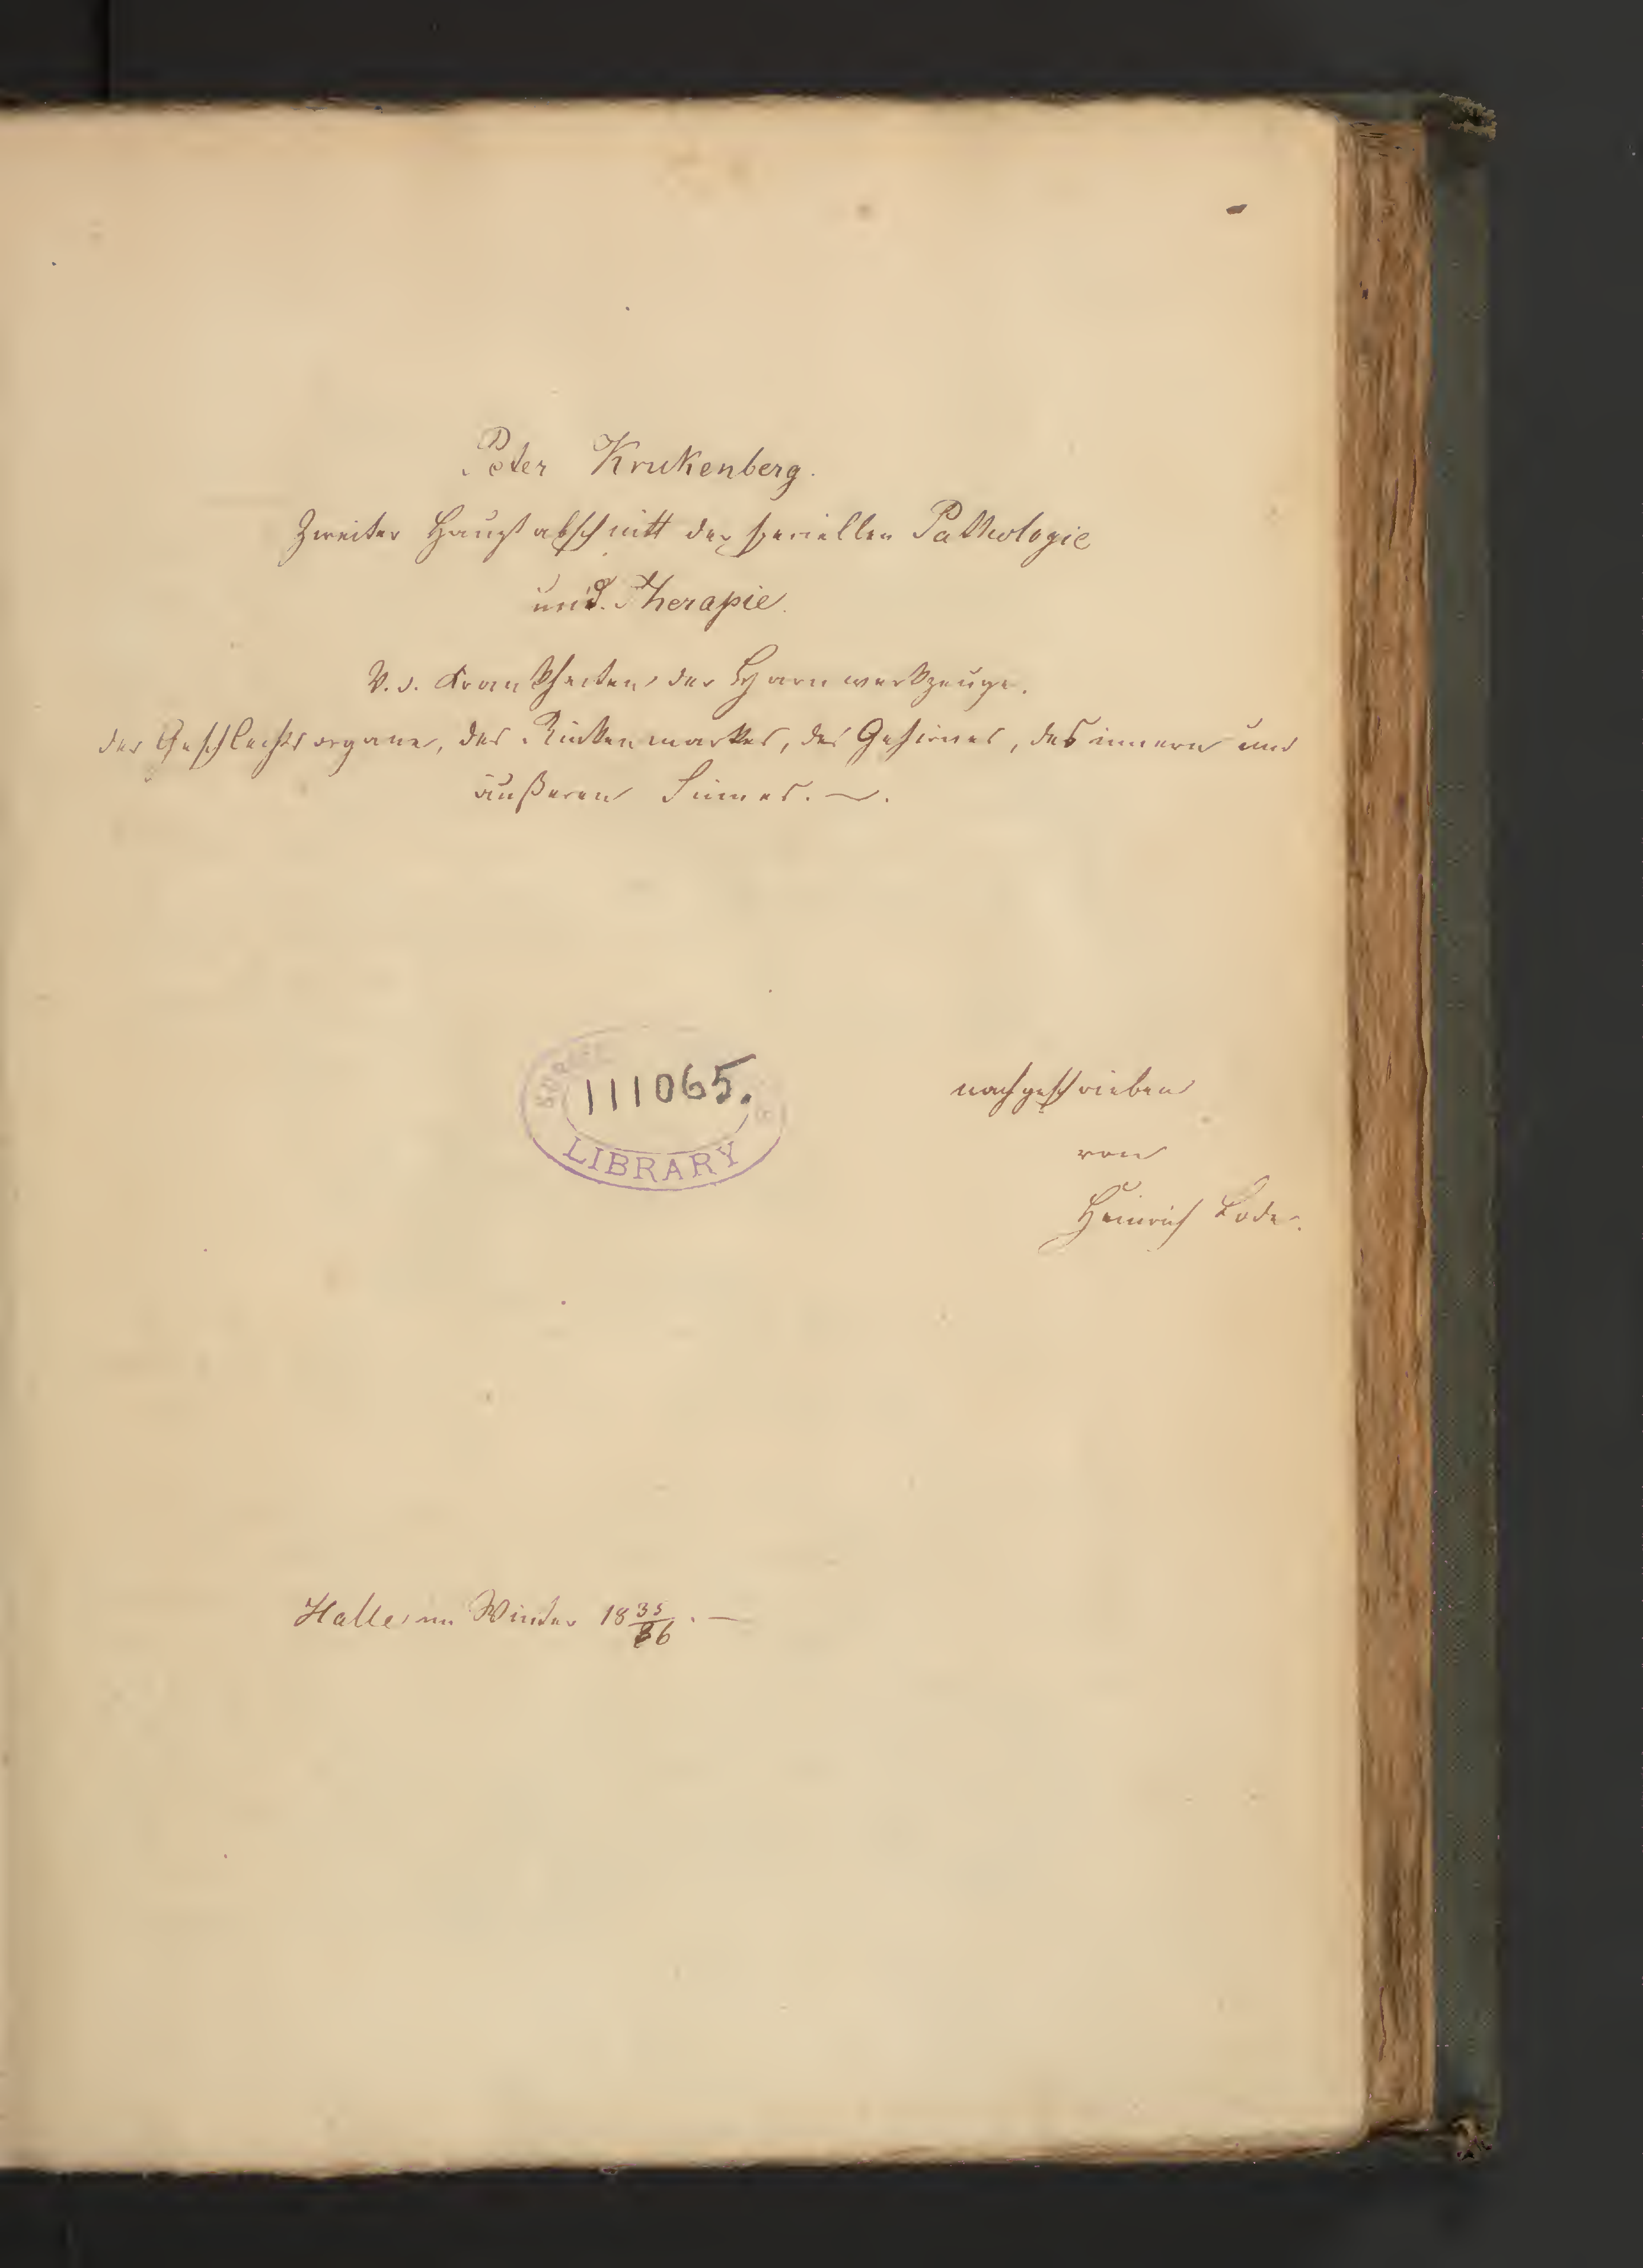 Peter Krukenberg.
Zweiter Hauptabschnitt der speciellen Pathologie
und. Therapie.
V. d. Krankheiten der Harnwerkzeuge.
der Geschlechtsorgane, des Rückenmarkes, des Gehirnes, des innern und
äußeren Sinnes. —.
111065.
LIBRARY
nachgeschrieben
von
Heinrich Lode.
Halle, im Winter 18 35/36. —